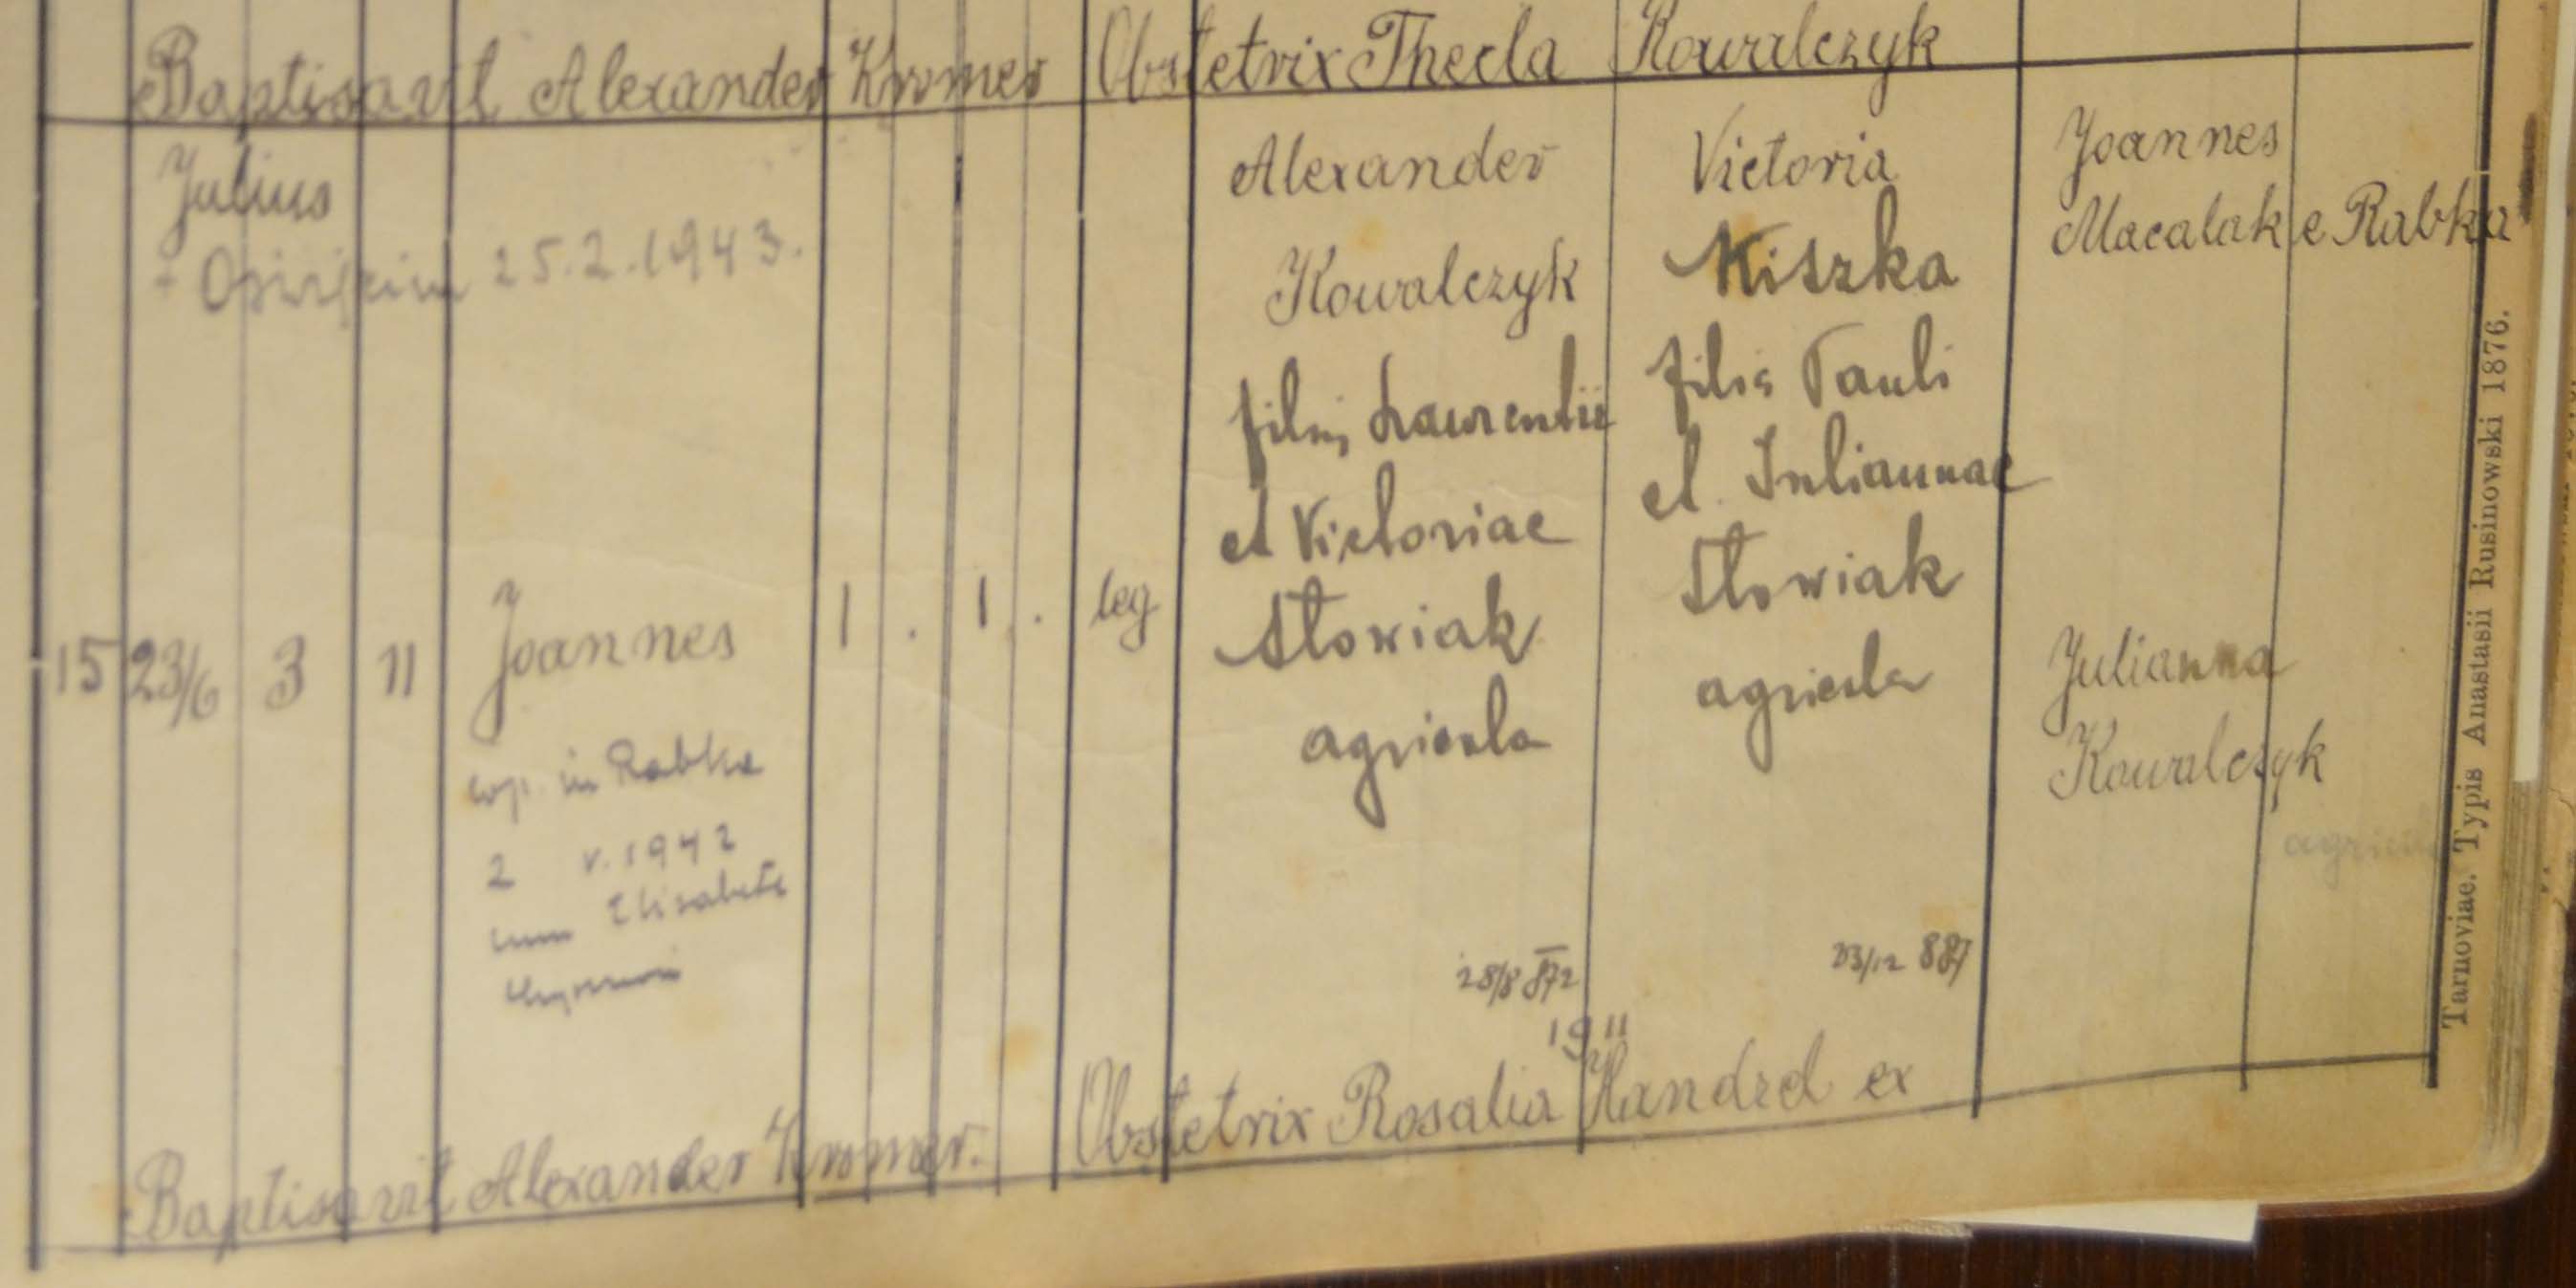 Baptisavit Alexander Kromer Obstetrix Thecla Kowalczyk
Julius
+ 25.2.1943.
15 23/6 3 11 Joannes
cop. in Rabka
2 V. 1942
cum Elisabeta
1 . 1 . leg
Alexander
Kowalczyk
filius Laurentii
et Victoriae
Słowiak
agricola
28/8 872
Victoria
Kiszka
filia Pauli
et Juliannae
Słowiak
agricola
23/12 887
1911
Joannes
Macalak e Rabka
Julianna
Kowalczyk
agricola
Baptisavit Alexander Kromer. Obstetrix Rosalia Handzel ex
Tarnoviae. Typis Anastasii Rusinowski 1876.